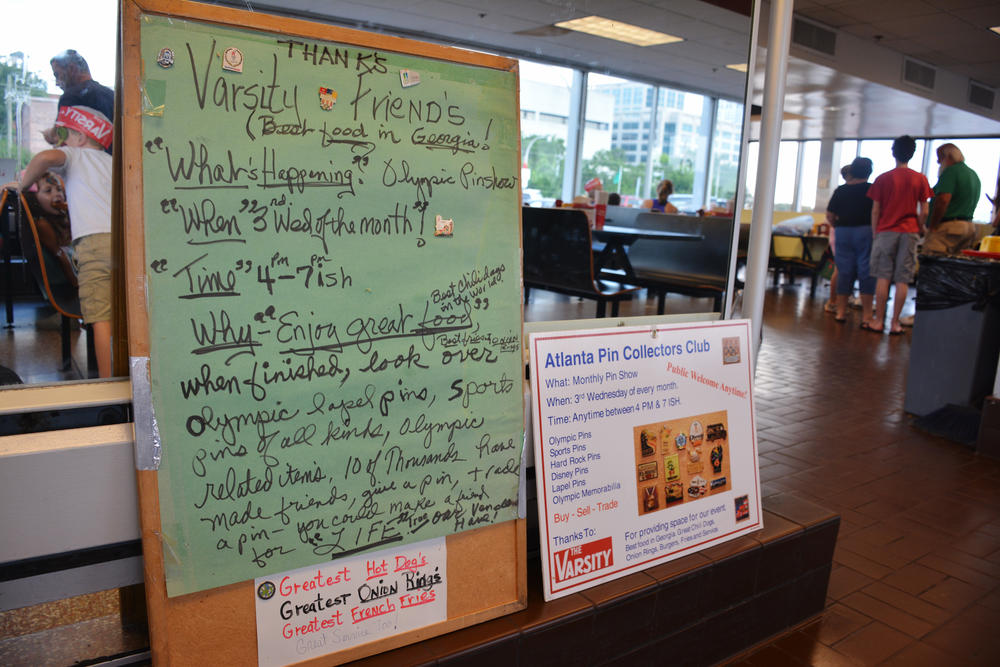 THANKS
Varsity Friend's
(Best food in Georgia!)
"What's Happening?" Olympic Pinshow
"When" 3rd Wed of the month!
"Time" 4PM-7PMish
Best Chili dogs
in the World"
Why - Enjoy great food,
when finished, look over
Olympic lapel pins, Sports
pins of all kinds, Olympic
related items, 10 of Thousands have
made friends, give a pin, + trade
a pin - friends, you could make a friend
for "LIFE"
Greatest Hot Dog's
Greatest Onion Rings
Greatest French Fries
Great Service Too!
VARSITY
Atlanta Pin Collectors Club
Public Welcome Anytime!
What: Monthly Pin Show
When: 3rd Wednesday of every month.
Time: Anytime between 4 PM & 7 ISH.
Olympic Pins
Sports Pins
Hard Rock Pins
Disney Pins
Lapel Pins
Olympic Memorabilia
Buy - Sell - Trade
Thanks To:
THE
VARSITY
For providing space for our event.
Best food in Georgia, Great Chili Dogs,
Onion Rings, Burgers, Fries and Service